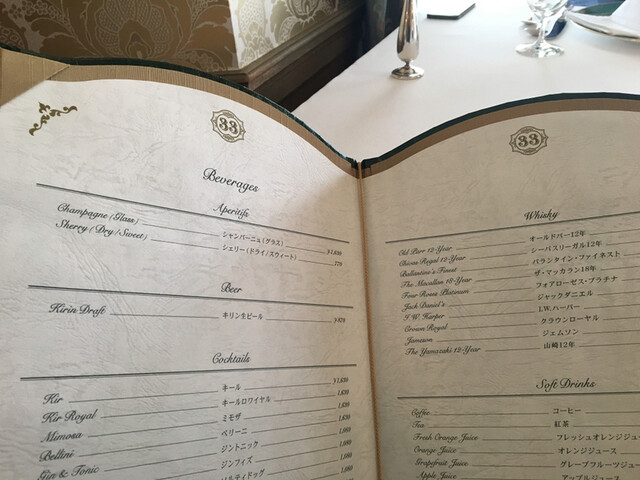 33
Beverages
Aperitifs
Champagne (Glass) シャンパーニュ(グラス) ¥1,630
Sherry (Dry/Sweet) シェリー(ドライ/スウィート) 770
Beer
Kirin Draft キリン生ビール
Cocktails
Kir キール
Kir Royal キールロワイヤル
Mimosa ミモザ
Bellini ベリーニ
Gin & Tonic ジントニック
ジンフィズ
ソルティドッグ
33
Whisky
Old Parr 12-Year オールドパー12年
Chivas Regal 12-Year シーバスリーガル12年
Ballantine's Finest バランタイン・ファイネスト
The Macallan 18-Year ザ・マッカラン18年
Four Roses Platinum フォアローゼス・プラチナ
Jack Daniel's ジャックダニエル
I.W. Harper I.W.ハーパー
Crown Royal クラウンローヤル
Jameson ジェムソン
The Yamazaki 12-Year 山崎12年
Soft Drinks
Coffee コーヒー
Tea 紅茶
Fresh Orange Juice フレッシュオレンジジュー
Orange Juice オレンジジュース
Grapefruit Juice グレープフルーツジュー
Apple Juice アップルジュース